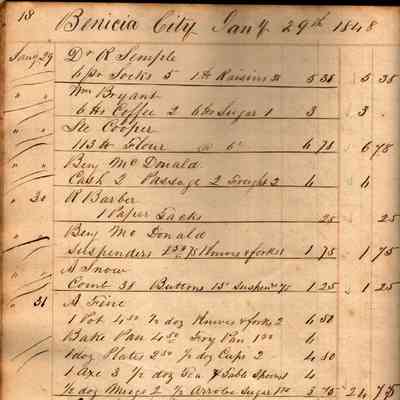 18 Benicia City Jany 29th 1848
Jany 29 Dr R Semple
6 pr Socks 5 1 lb Raisins 38 5 38 5 38
" " Wm Bryant
6 lbs Coffee 2 6 lbs Sugar 1 3 3
" " Cooper
113 lb Flour 6c 6 78 6 78
" " Benj McDonald
Cash 2 Passage 2 Freight 2 6 6
" 30 R Barber
1 Paper Tacks 25 25
" " Benj McDonald
Suspenders Knives & forks 1 75 1 75
" " A Snow
Comb 38 Buttons 15 Suspen 75 1 25 1 25
" 31 A
1 Pot 4 50 1/2 doz Knives & forks 2 6 50
Bake Pan 4 50 Fry Pan 1 50 6
1 doz Plates 2 50 1/2 doz Cups 2 4 50
1 Axe 3 1/2 doz Tea & Table Spoons 4
1/2 doz Mugs 2 1/2 Arrobe Sugar 1 75 3 75 24 75